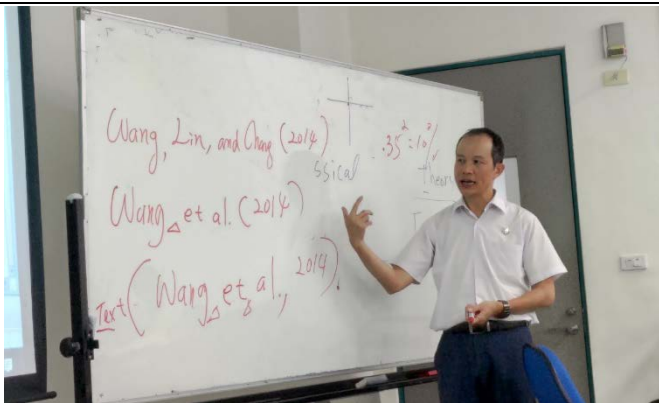 Wang, Lin, and Chang (2014)
ssical
.35² = 10%
theory
Wang△ et al. (2014)
Text (Wang△ et△ al., 2014).